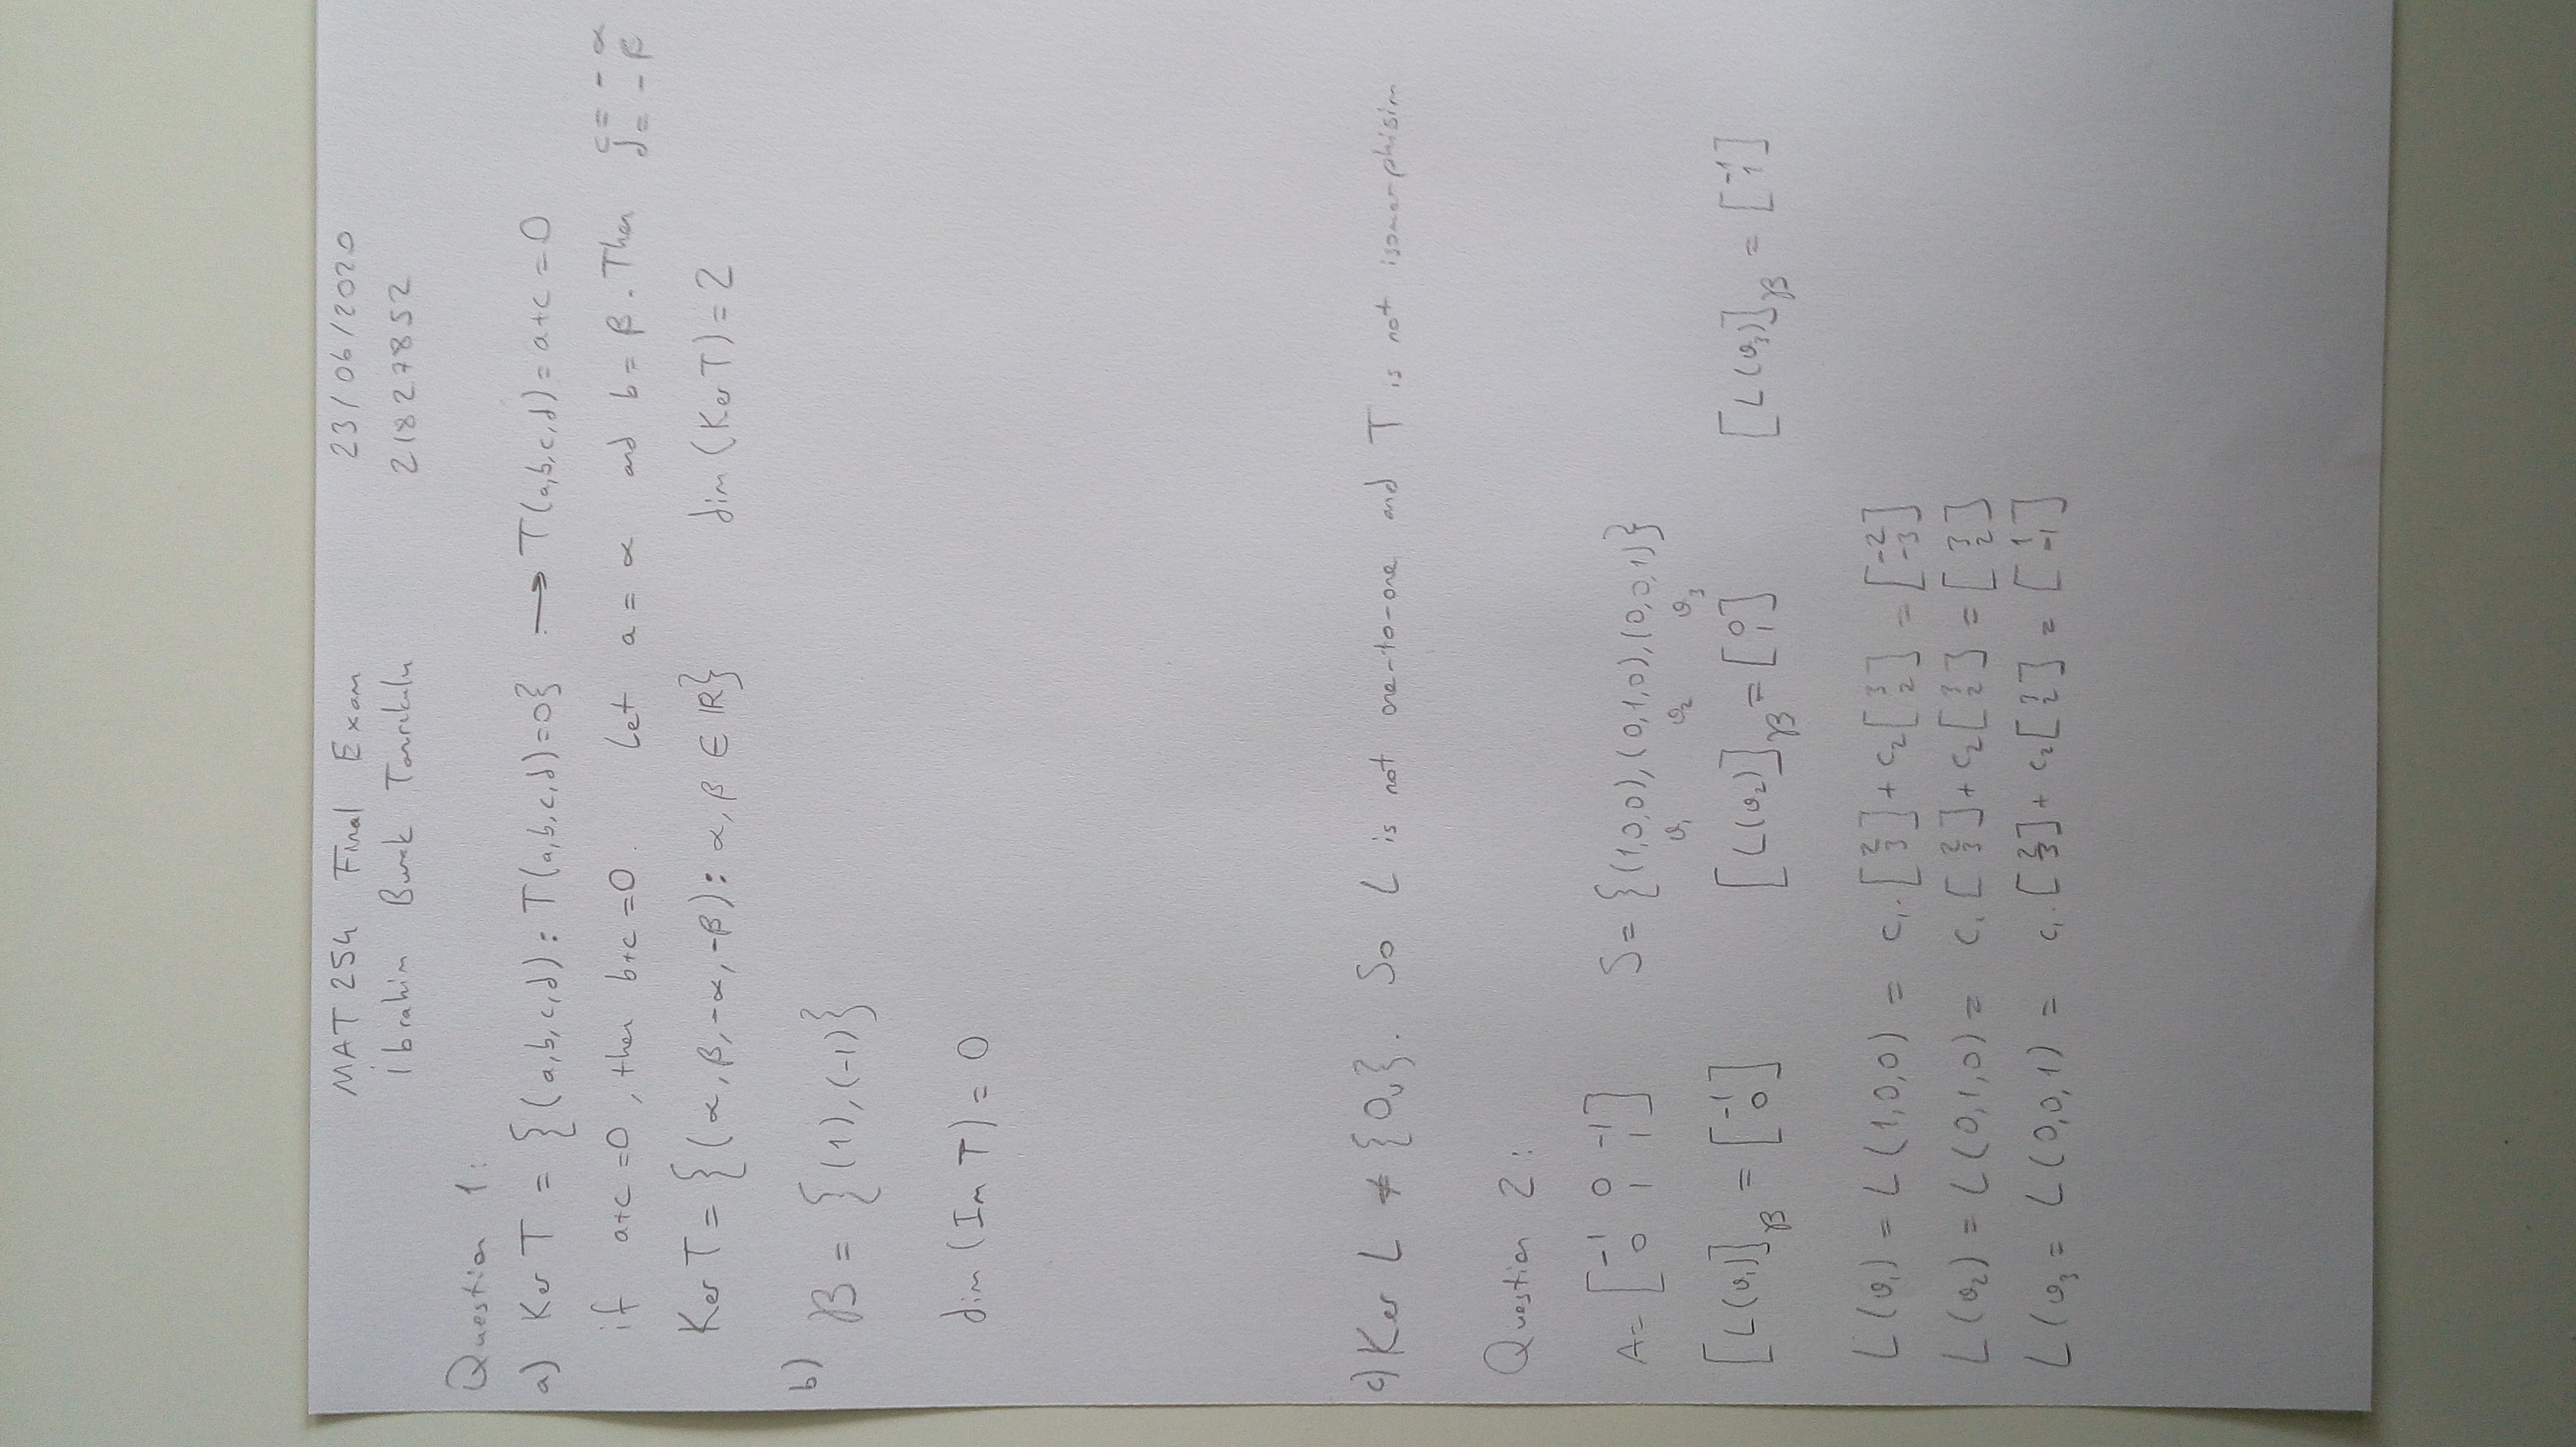 MAT 254 Final Exam 23/06/2020
İbrahim Burak Tanrıkulu 21827852
Question 1:
a) Ker T = {(a,b,c,d) : T(a,b,c,d)=0} → T(a,b,c,d) = a+c = 0
if a+c =0, then b+c =0. Let a = α and b = β. Then c = -α d = -β
Ker T = {(α, β, -α, -β) : α, β ∈ IR} dim (Ker T) = 2
b) B = {(1), (-1)}
dim (Im T) = 0
c) Ker L ≠ {0ᵥ}. So L is not one-to-one and T is not isomorphisim
Question 2:
A = [-1 0 -1; 0 1 1] S = {(1,0,0), (0,1,0), (0,0,1)}
v₁ v₂ v₃
[L(v₁)]_B = [-1; 0] [L(v₂)]_B = [0; 1] [L(v₃)]_B = [-1; 1]
L(v₁) = L(1,0,0) = c₁.[2; 3] + c₂[3; 2] = [-2; -3]
L(v₂) = L(0,1,0) = c₁[2; 3] + c₂[3; 2] = [3; 2]
L(v₃ = L(0,0,1) = c₁.[2; 3] + c₂[3; 2] = [1; -1]